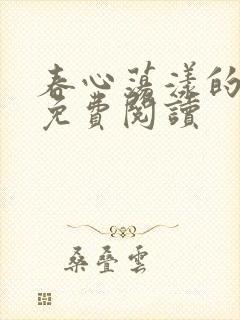 春心蕩漾的
免費閱讀
桑叠雲